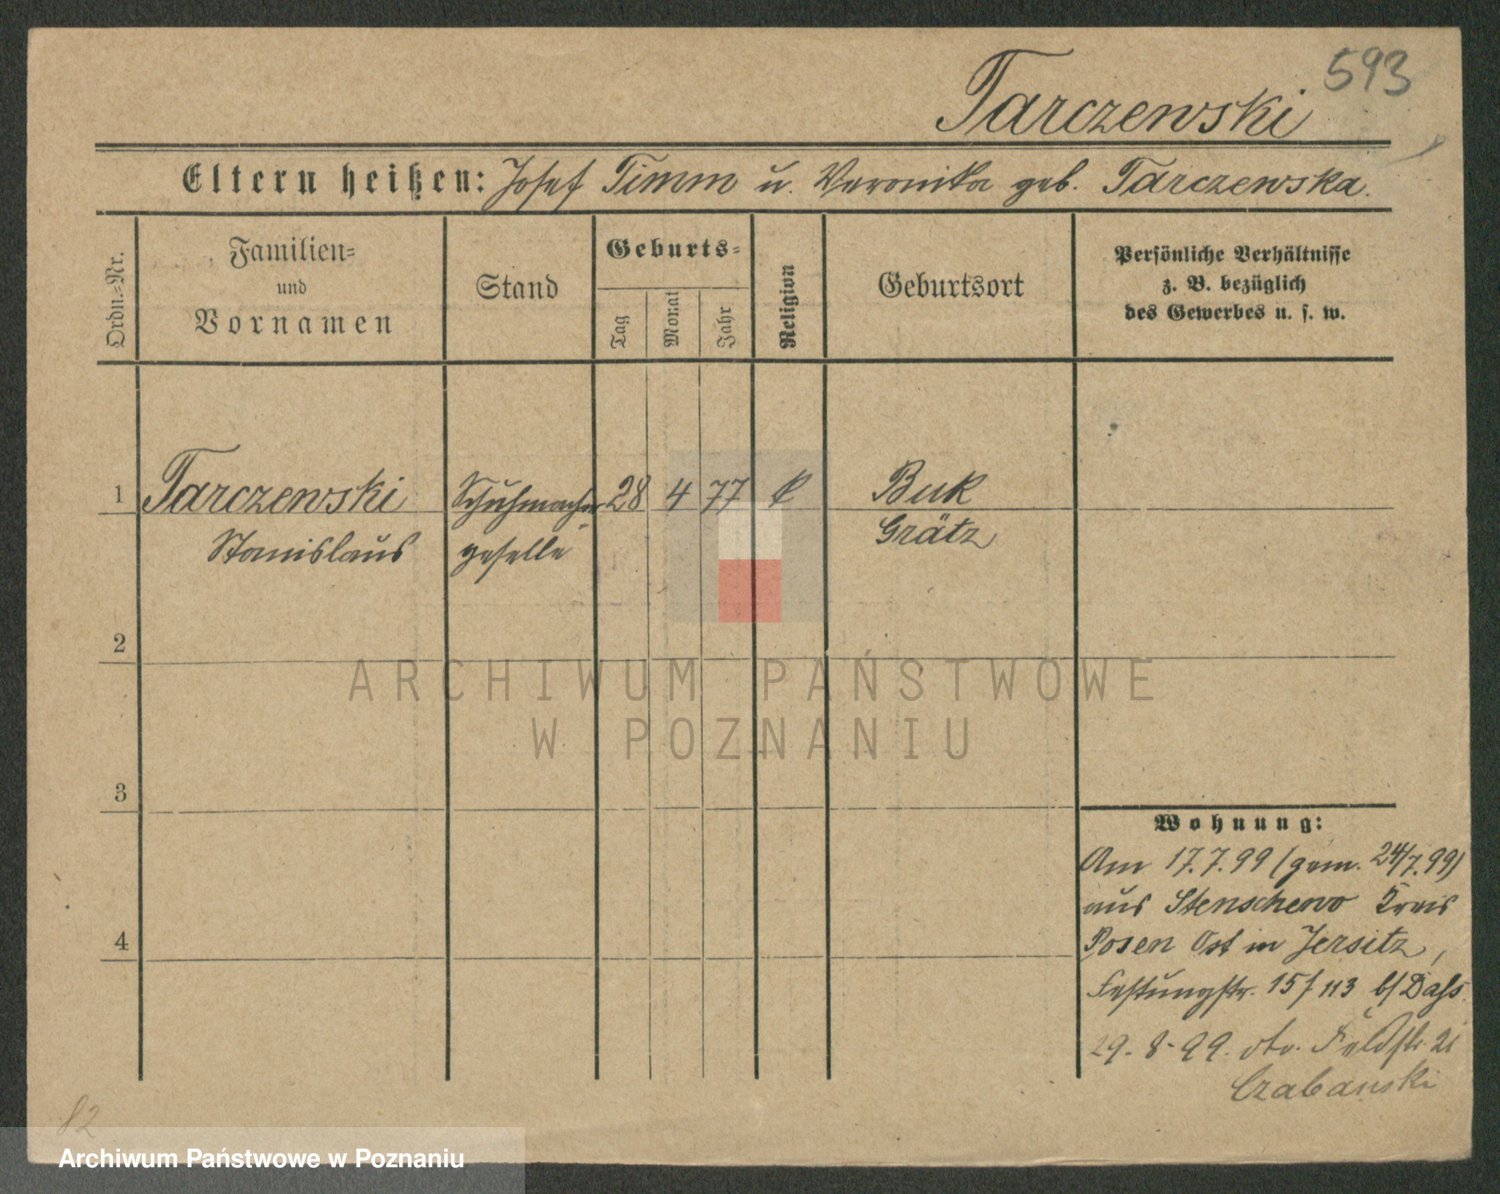 593
Tarczewski
Eltern heißen: Josef Timm u. Veronika geb. Tarczewska.
Ordn.=Nr.
Familien=
und
Vornamen
Stand
Geburts=
Tag
Monat
Jahr
Religion
Geburtsort
Persönliche Verhältnisse
z. B. bezüglich
des Gewerbes u. s. w.
1 Tarczewski Schuhmacher 28 4 77 Buk
Stanislaus geselle Grätz
2
ARCHIWUM PAŃSTWOWE
W POZNANIU
3
Wohnung:
Am 17.7.99 (gem. 24/7.99)
aus Stenschewo Kreis
Posen Ost in Jersitz,
Festungstr. 15 113 b/
29.8.99. Feldstr. 21
Czabanski
4
82
Archiwum Państwowe w Poznaniu